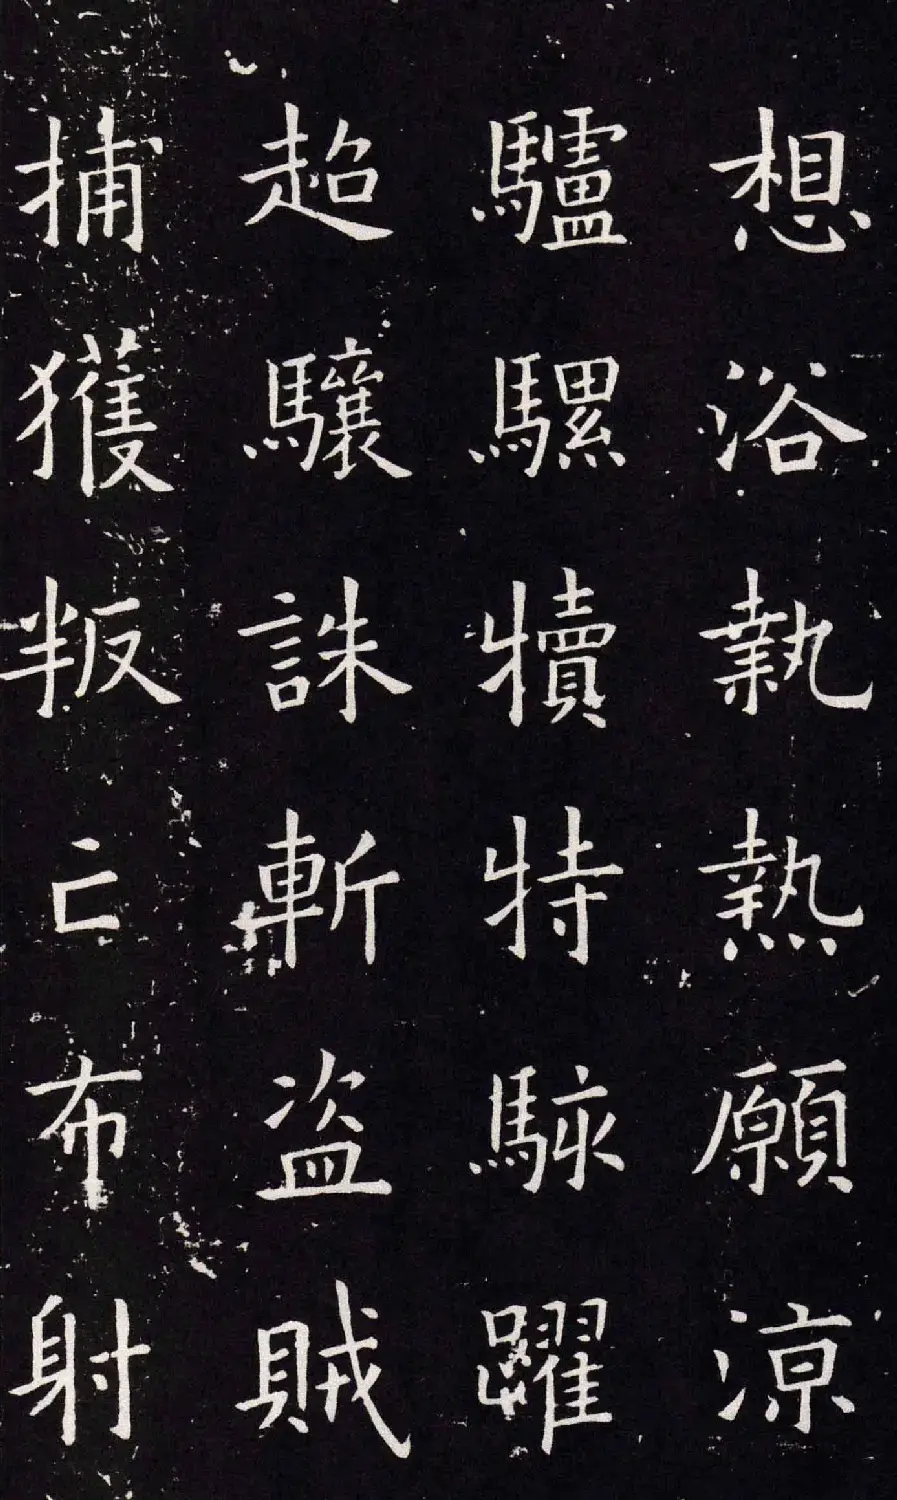 想浴執熱願涼
驢騾犢特駭躍
超驤誅斬盗賊
捕獲叛亡布射